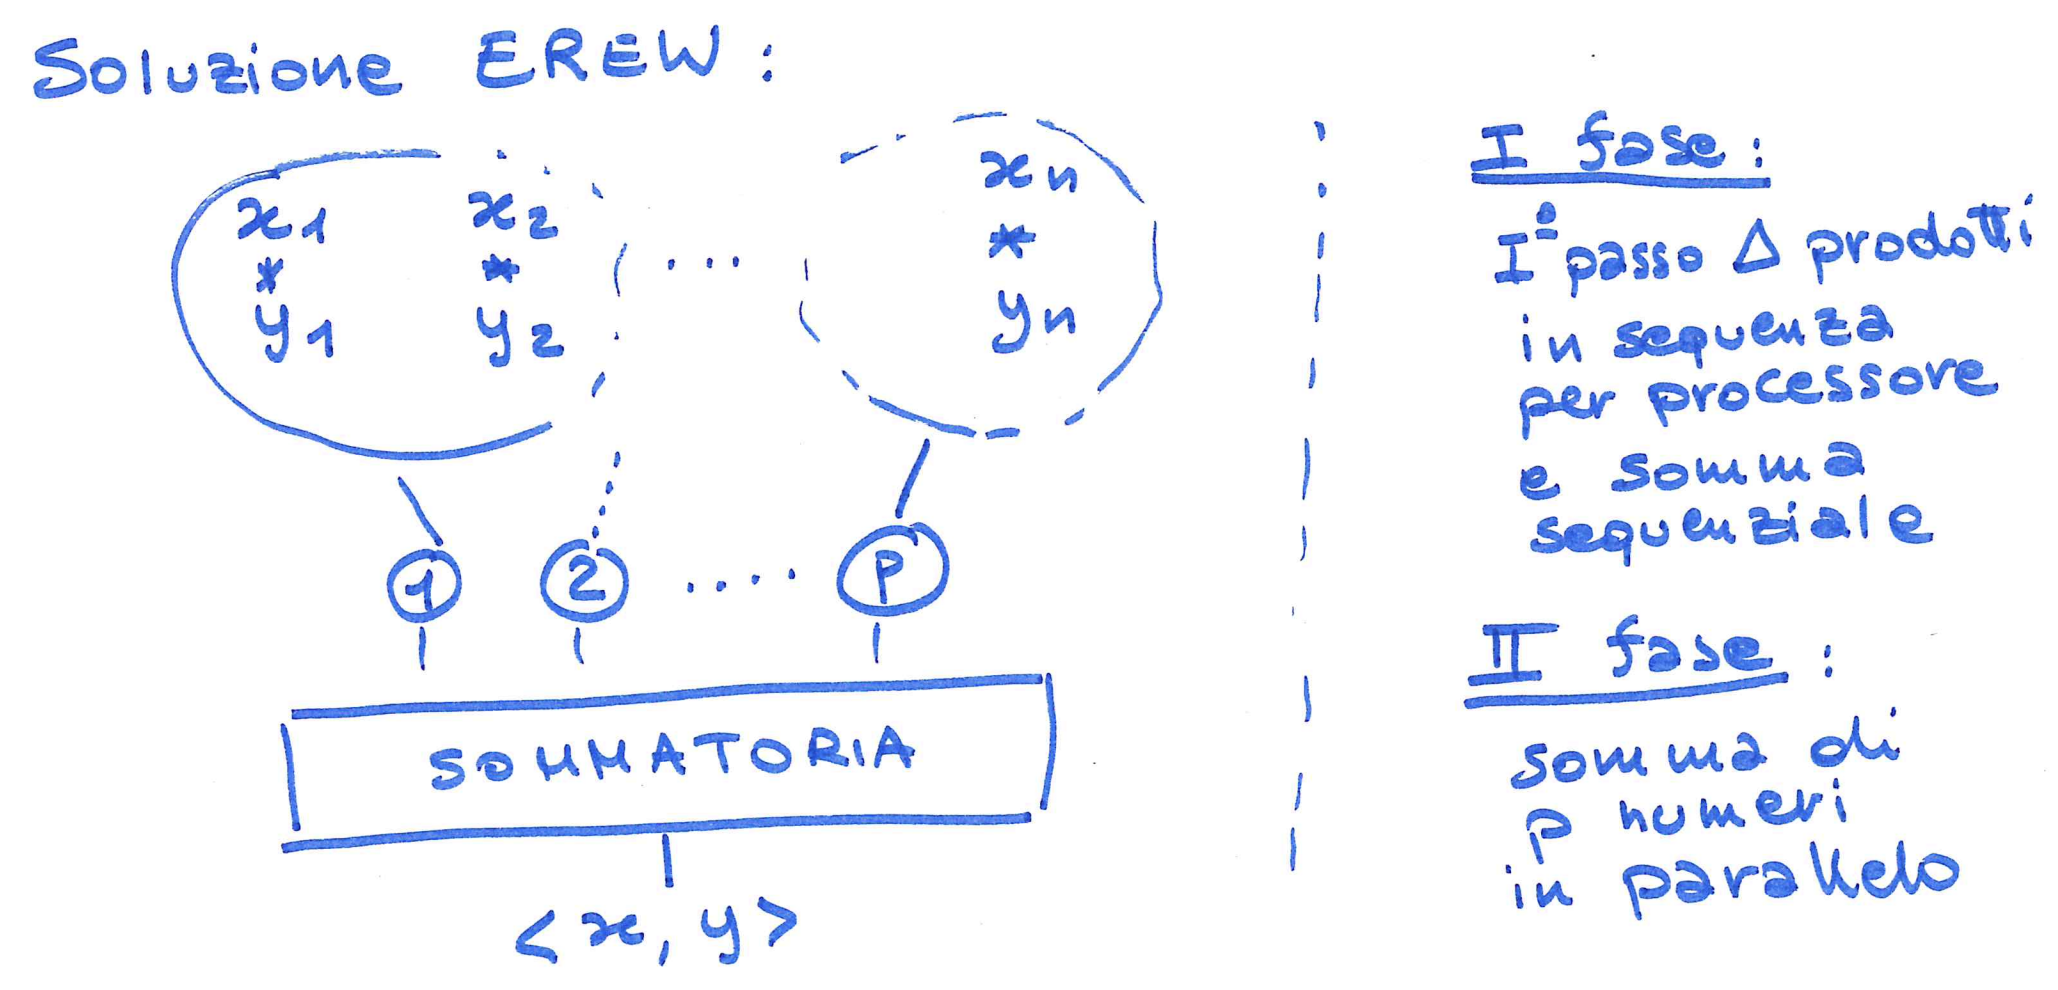 Soluzione EREW:
x1 x2 ... xn
* * *
y1 y2 yn
1 2 .... P
SOMMATORIA
<x, y>
I fase:
I° passo Δ prodotti
in sequenza
per processore
e somma
sequenziale
II fase:
somma di
p numeri
in parallelo